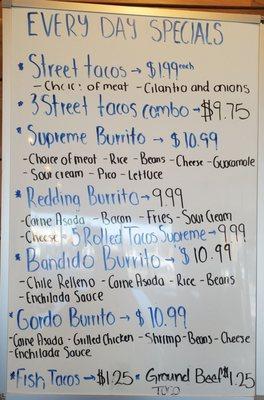 EVERY DAY SPECIALS
* Street tacos → $1.99 each
- Choice of meat - Cilantro and onions
* 3 Street tacos combo → $9.75
* Supreme Burrito → $10.99
- Choice of meat - Rice - Beans - Cheese - Guacamole
- Sour cream - Pico - Lettuce
* Redding Burrito → 9.99
- Carne Asada - Bacon - Fries - Sour Cream
- Cheese * 5 Rolled Tacos Supreme → 9.99
* Bandido Burrito → $10.99
- Chile Relleno - Carne Asada - Rice - Beans
- Enchilada Sauce
* Gordo Burrito → $10.99
- Carne Asada - Grilled Chicken - Shrimp - Beans - Cheese
- Enchilada Sauce
* Fish Tacos → $1.25 * Ground Beef $1.25
Taco